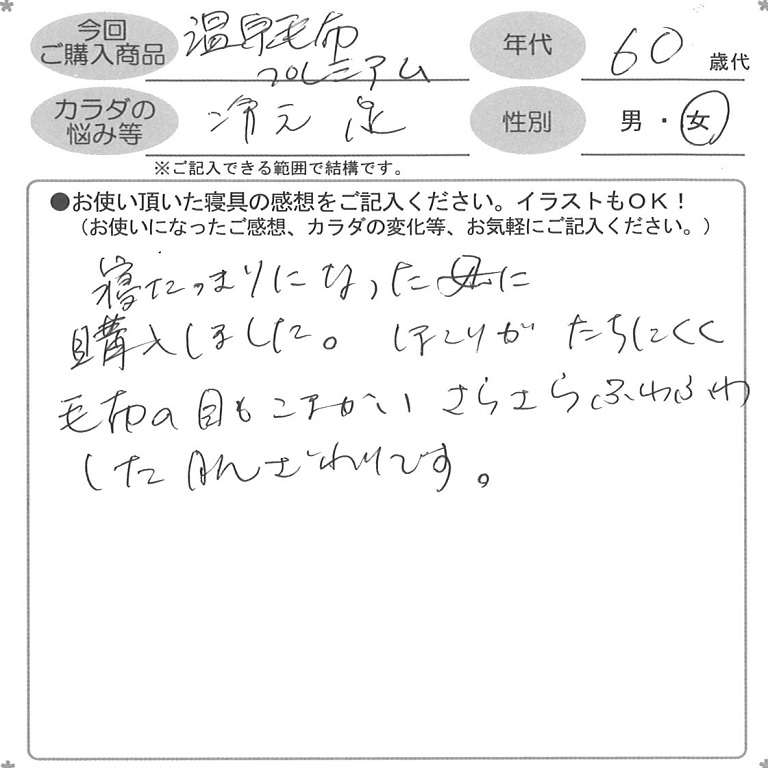 今回
ご購入商品
温泉毛布
プレミアム
年代
60 歳代
カラダの
悩み等
冷え症
性別
男・女
※ご記入できる範囲で結構です。
●お使い頂いた寝具の感想をご記入ください。イラストもOK！
（お使いになったご感想、カラダの変化等、お気軽にご記入ください。）
寝たっまりになった母に
購入しました。ほこりがたちにくく
毛布の目もこまかいさらさらふわふわ
した肌ざわりです。